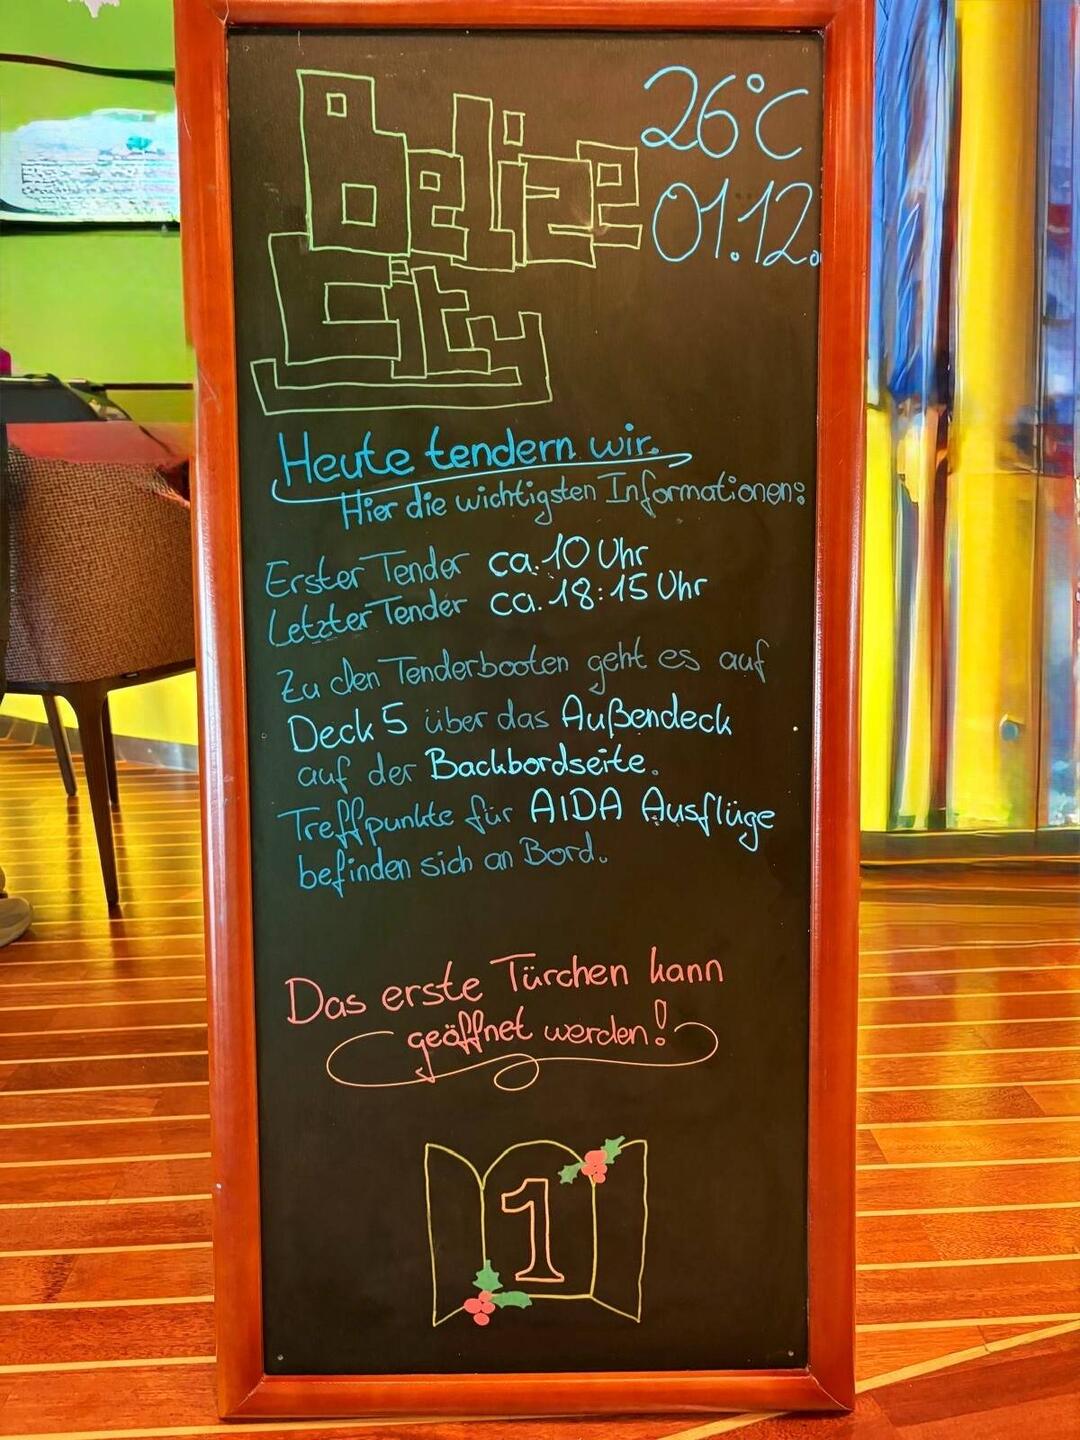 Belize
City
26°C
01.12.
Heute tendern wir.
Hier die wichtigsten Informationen:
Erster Tender ca. 10 Uhr
Letzter Tender ca. 18:15 Uhr
Zu den Tenderbooten geht es auf
Deck 5 über das Außendeck
auf der Backbordseite.
Treffpunkte für AIDA Ausflüge
befinden sich an Bord.
Das erste Türchen kann
geöffnet werden!
1